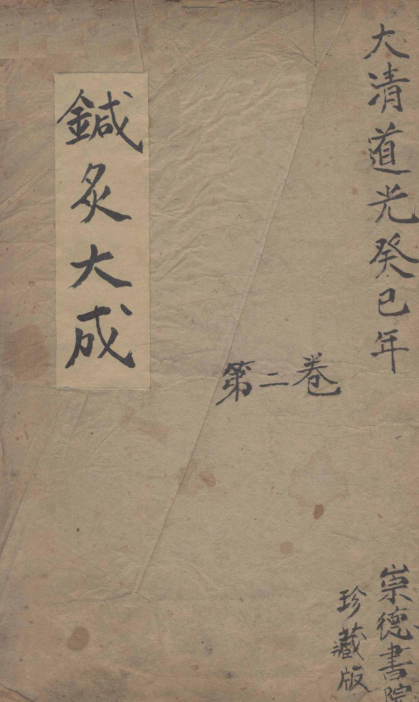 大清道光癸巳年
崇德書院
珍藏版
第二卷
鍼灸大成